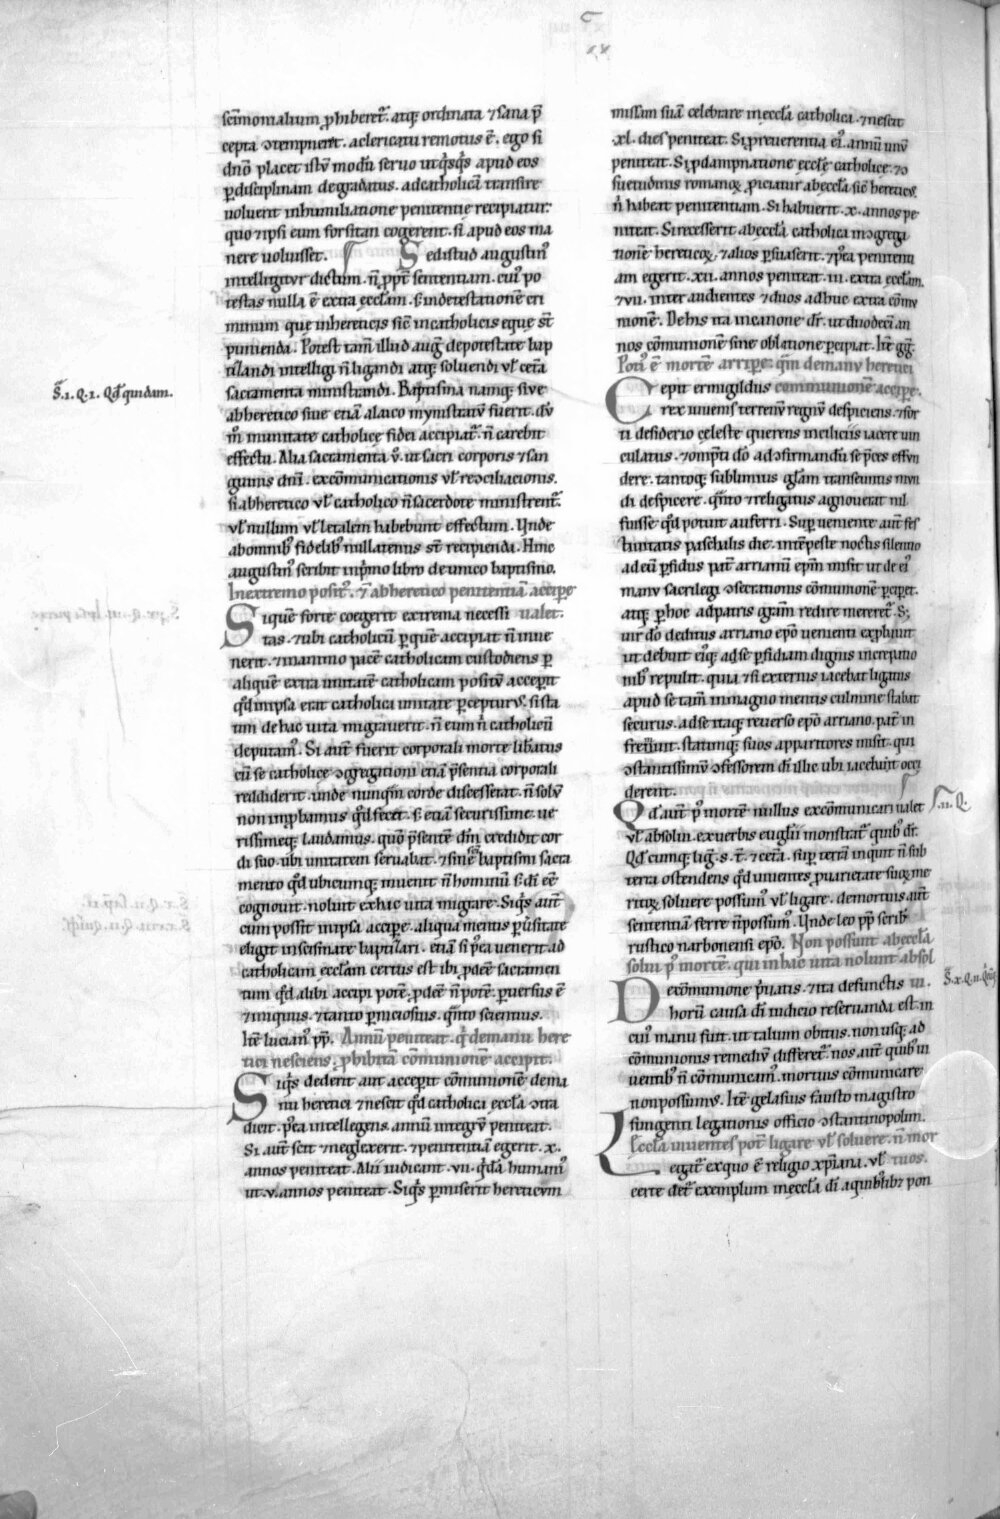 scimonialium ꝓhiberet᷑. atq; ordinata ⁊ sana p̄
cepta ɔtempneret. a clericatu remotus ē. ego si
dn̄o placet istū modū seruo ut q̇sq̇s apud eos
ꝑ disciplinam degradatus. ad catholicā transire
uoluerit in humiliatione penitentie recipiatur.
quo ⁊ ipsi eum forsitan cogerent. si apud eos ma
nere uoluisset. Sed istud augustin᷒
intelligitur dictum. n̄ ꝓpt̄ sententiam. cui᷒ po
testas nulla ē extra ęccl̄am. s; in detestationē cri
minum que in hereticis sic̄ in catholicis eque st̄
punienda. Potest tam̄ illud auḡ de potestate bap
tizandi intelligi n̄ ligandi atq; soluendi ul̄ cet̄a
sacramenta ministrandi. Baptisma namq; siue
ab heretico siue etiā a laico mynistratū fuerit. dū
m̊ in unitate catholicę fidei accipiat᷑. n̄ carebit
effectu. Alia sacramenta ū. ut sacri corporis ⁊ san
guinis dn̄i. excōmunicationis ul̄ recōciliacionis.
si ab heretico ul̄ catholico n̄ sacerdote ministrent᷑.
ul̄ nullum ul̄ letalem habebunt effectum. Unde
ab omnib᷒ fidelib᷒ nullatenus st̄ recipienda. Hinc
augustin᷒ scribit in p̍mo libro de unico baptismo.
In extremo posit᷒. ⁊ ab heretico penitentiā accipe
Si quē forte coegerit extrema necessi ualet.
tas. ⁊ ubi catholicū ꝑ quē accipiat n̄ inue
nerit. ⁊ in animo pacē catholicam custodiens ꝑ
aliquē extra unitatē catholicam positū acceperit
qd̄ in ipsa erat catholica unitate ꝑcepturus. si sta
tim de hac uita migrauerit. n̄ eum n̄ catholicū
deputam᷒. Si aut̄ fuerit corporali morte lib̄atus
cū se catholice ɔgregationi etiā p̄sentia corporali
reddiderit. unde nunq̄m corde discesserat. n̄ solū
non inꝓbamus qd̄ fecit. s; etiā securissime ue
rissimeq; laudamus. quō p̄sentē dm̄ credidit cor
di suo. ubi unitatem seruabat. ⁊ sine baptismi sacra
mento qd̄ ubicumq; inuenit n̄ hominū s; di eē
cognouit. noluit ex hac uita migrare. Siq̇s aut̄
cum possit in ipsa accipe. aliqua mentis ꝑuersitate
eligit in scismate baptizari. etiā si p̄ea uenerit ad
catholicam ęccl̄am certus est ibi p̄dēē sacramen
tum qd̄ alibi accipi potē. p̄dēē n̄ potē. ꝑuersus ē
⁊ iniquus. ⁊ tanto ꝑniciosius. q̄nto scientius.
Itē lucian᷒ pp̄. Annū peniteat. q̇ de manu here
tici nesciens. ꝓhibitā cōmunionē accepit.
Siq̇s dederit aut acceperit cōmunionē de ma
nu heretici ⁊ nescit qd̄ catholica ęccl̄a ɔtra
dicit. p̄ea intellegens. annū integrū peniteat.
Si aut̄ scit ⁊ neglexerit. ⁊ penitentiā egerit. x.
annos peniteat. Alii iudicant. vii. q̇dā humani᷒
ut. v. annos peniteat. Siq̇s ꝑmiserit hereticum
missam suā celebrare in ęccl̄a catholica. ⁊ nescit
.xl. dies peniteat. Si ꝓ reuerentia ei᷒. annū unū
peniteat. Si ꝓ dampnatione ęccl̄e catholice. ⁊ ɔ
suetudinis romanoꝝ. ꝓiciatur ab ęccl̄a sic̄ hereticus.
n̄ habeat penitentiam. Si habuerit. x. annos pe
niteat. Si recesserit ab ęccl̄a catholica in ɔgrega
tionē hereticoꝝ. ⁊ alios ꝑsuaserit. ⁊ p̄ea penitenti
am egerit. xii. annos peniteat. iii. extra ęccl̄am.
⁊ vii. inter audientes. ⁊ duos adhuc extra cōmu
nionē. De his ita in canone dr̄. ut duodecī an
nos cōmunionē sine oblatione ꝑcipiat. Itē gg̅.
Poti᷒ ē mortē arripe q̄m de manu heretici
Cepit ermigildus communionē accipe.
rex iuuenis terrenū regnū despiciens. ⁊ for
ti desiderio celeste querens in ciliciis iacere uin
culatus. ⁊ omp̄ti dō ad ɔfirmandū se p̄ces effun
dere. tantoq; sublimius gl̄am transeuntis mun
di despicere. q̄nto ⁊ religatus agnouerat nil
fuisse qd̄ potuit auferri. Superueniente aut̄ fes
tiuitatis paschalis die. intēpeste noctis silentio
ad eū ꝑfidus pat̄ arrianū ep̄m misit ut de ei᷒
manu sacrilegi ɔsecrationis cōmunionē ꝑciperet.
atq; ꝑ hoc ad patris gr̄am redire mereret᷑. S;
uir dō deditus arriano ep̄o uenienti exꝓbrauit
ut debuit ei᷒q; ad se ꝑfidiam dignis increpatio
nib᷒ repulit. quia ⁊ si exterius iacebat ligatus
apud se tam̄ in magno mentis culmine stabat
securus. ad se itaq; reuerso ep̄o arriano. pat̄ in
fremuit. statimq; suos apparitores misit. qui
ɔstantissimū ɔfessorem di illic ubi iacebat occi
derent.
Qd̄ aut̄ p᷒ mortē nullus excōmunicari ualet
ul̄ absolui. ex uerbis eugl̄ii monstrat᷑ quib᷒ dr̄.
Qd̄cumq; lig̅. s. t̄. ⁊ cet̄a. super terrā inquit n̄ sub
terra ostendens qd̄ uiuentes ꝓ uarietate suoꝝ me
ritoꝝ soluere possum᷒ ul̄ ligare. de mortuis aut̄
sententiā ferre n̄ possum᷒. Unde leo pp̄ scrib̄
rustico narbonensi ep̄o. Non possunt ab ęccl̄a
solui p᷒ mortē. qui in hac uita nolunt absol
De cōmunione p̍uatis. ⁊ ita defunctis ui.
horū causa di iudicio reseruanda est. in
cui᷒ manu fuit. ut talium obitus. non usq; ad
cōmunionis remediū differet᷑. nos aut̄ quib᷒ ui
uentib᷒ n̄ cōmunicam᷒. mortuis cōmunicare
non possumus. Itē gelasius fausto magistro
fungenti legationis officio ɔstantinopolim.
Eccl̄a uiuentes pot̄ ligare ul̄ soluere. n̄ mor
Legat᷑ ex quo ē religio xp̄iana. ul̄ tuos.
certe det᷑ exemplum in ęccl̄a di a quib᷒libꝫ pon
S̄. 1. Q. 1. Qd̄ quidam.
.ii. Q.
S̄. x. Q. ii.